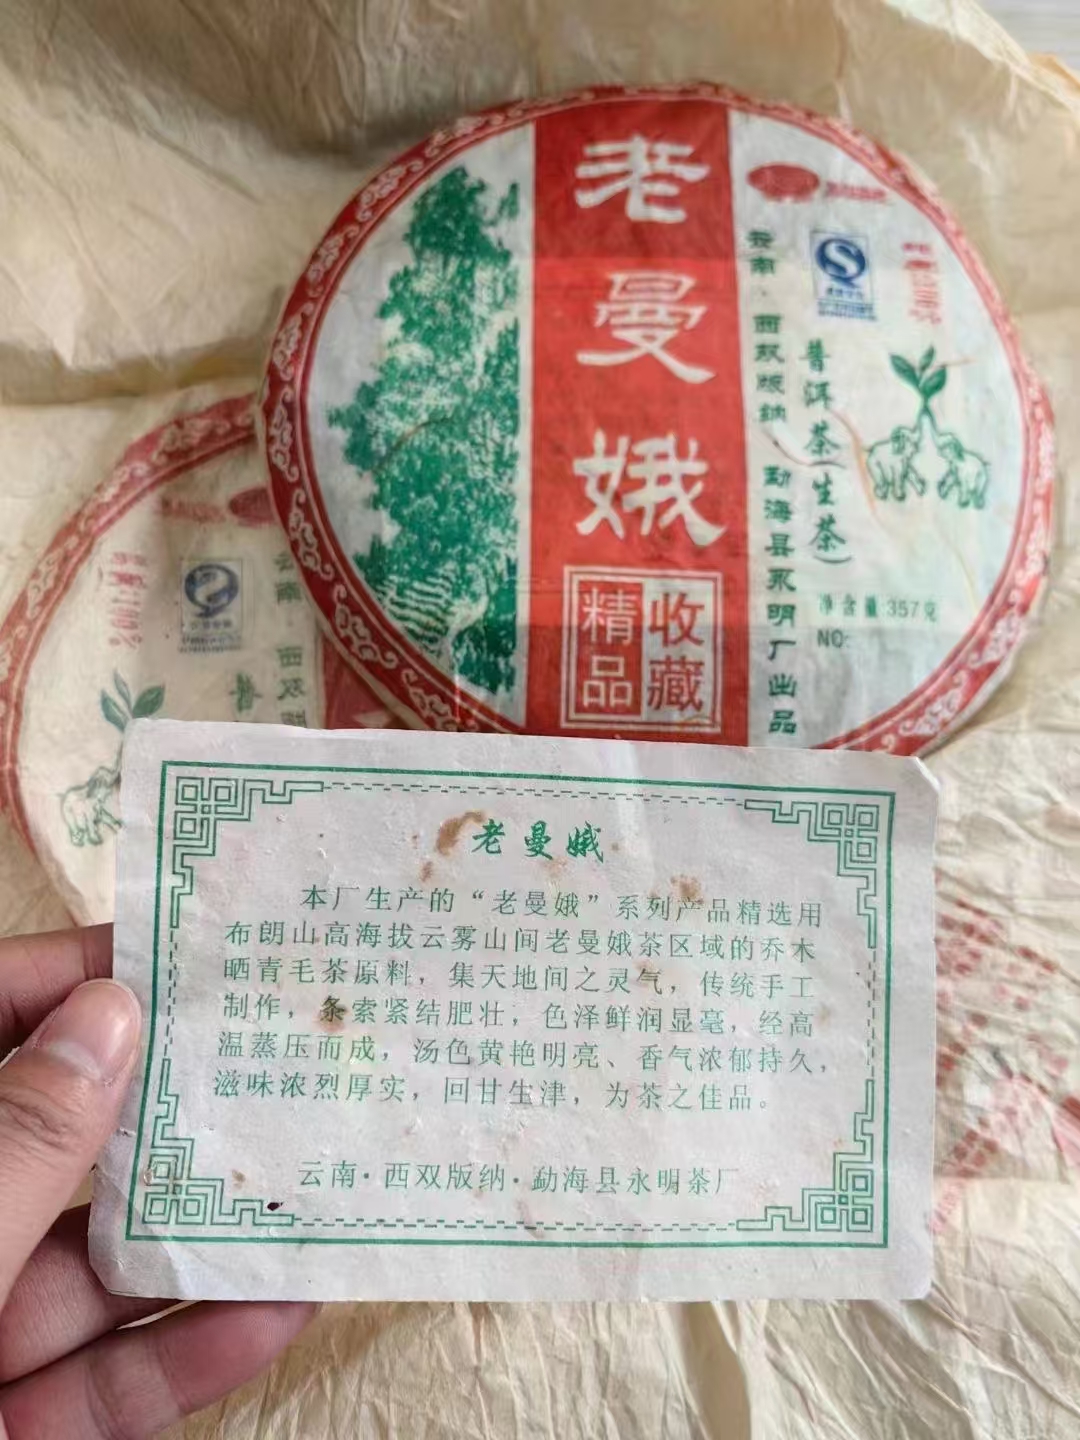 老曼娥
收藏
精品
云南·西双版纳·勐海县永明厂出品
普洱茶(生茶)
净含量:357克
NO:
云南·西双版
老曼娥
本厂生产的“老曼娥”系列产品精选用
布朗山高海拔云雾山间老曼娥茶区域的乔木
晒青毛茶原料，集天地间之灵气，传统手工
制作，条索紧结肥壮，色泽鲜润显毫，经高
温蒸压而成，汤色黄艳明亮、香气浓郁持久，
滋味浓烈厚实，回甘生津，为茶之佳品。
云南·西双版纳·勐海县永明茶厂